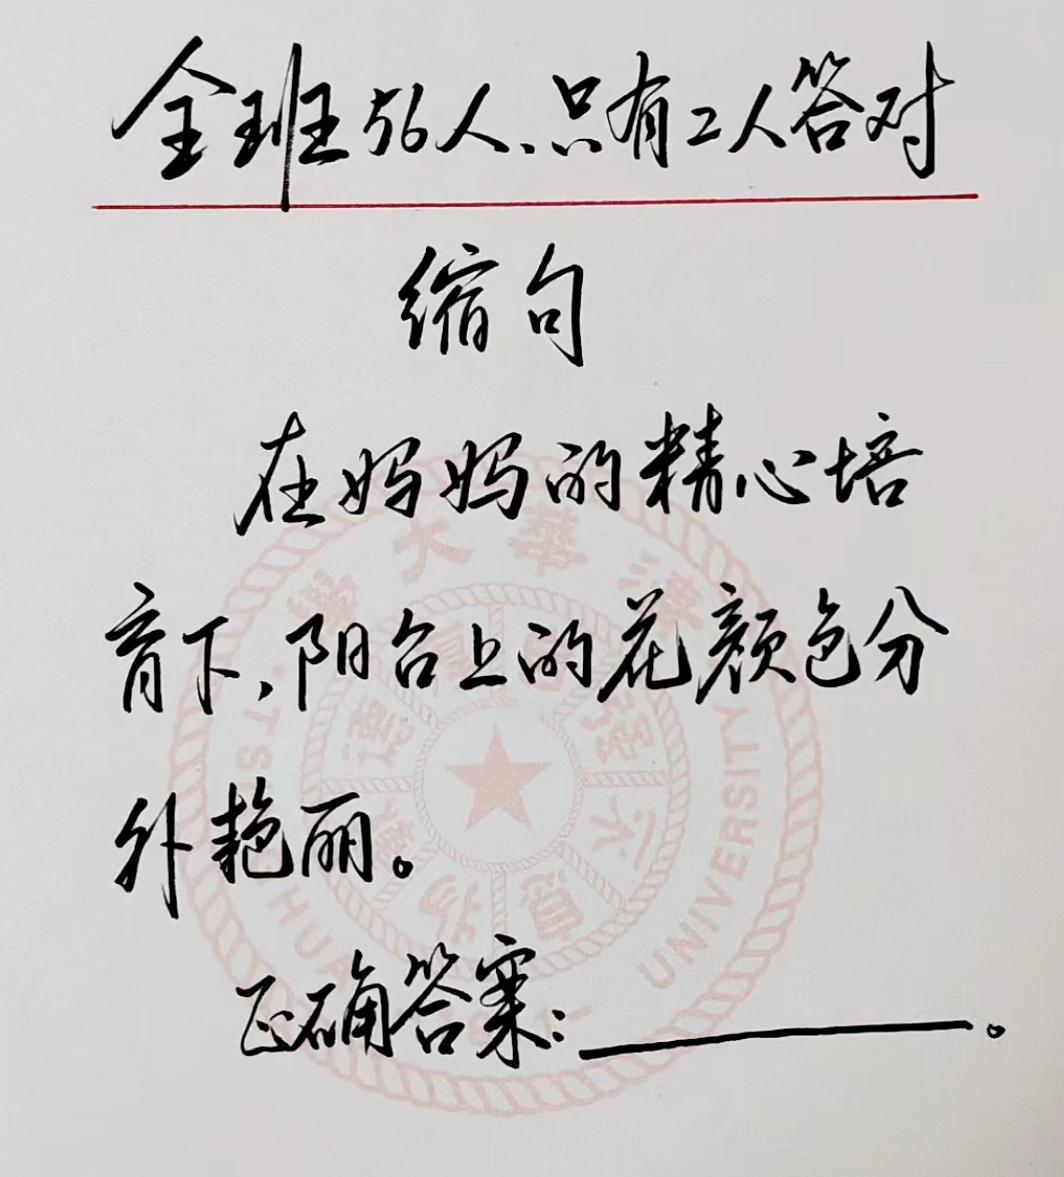 全班56人、只有2人答对
缩句
在妈妈的精心培
育下,阳台上的花颜色分
外艳丽。
正确答案:________。
UNIVERSITY